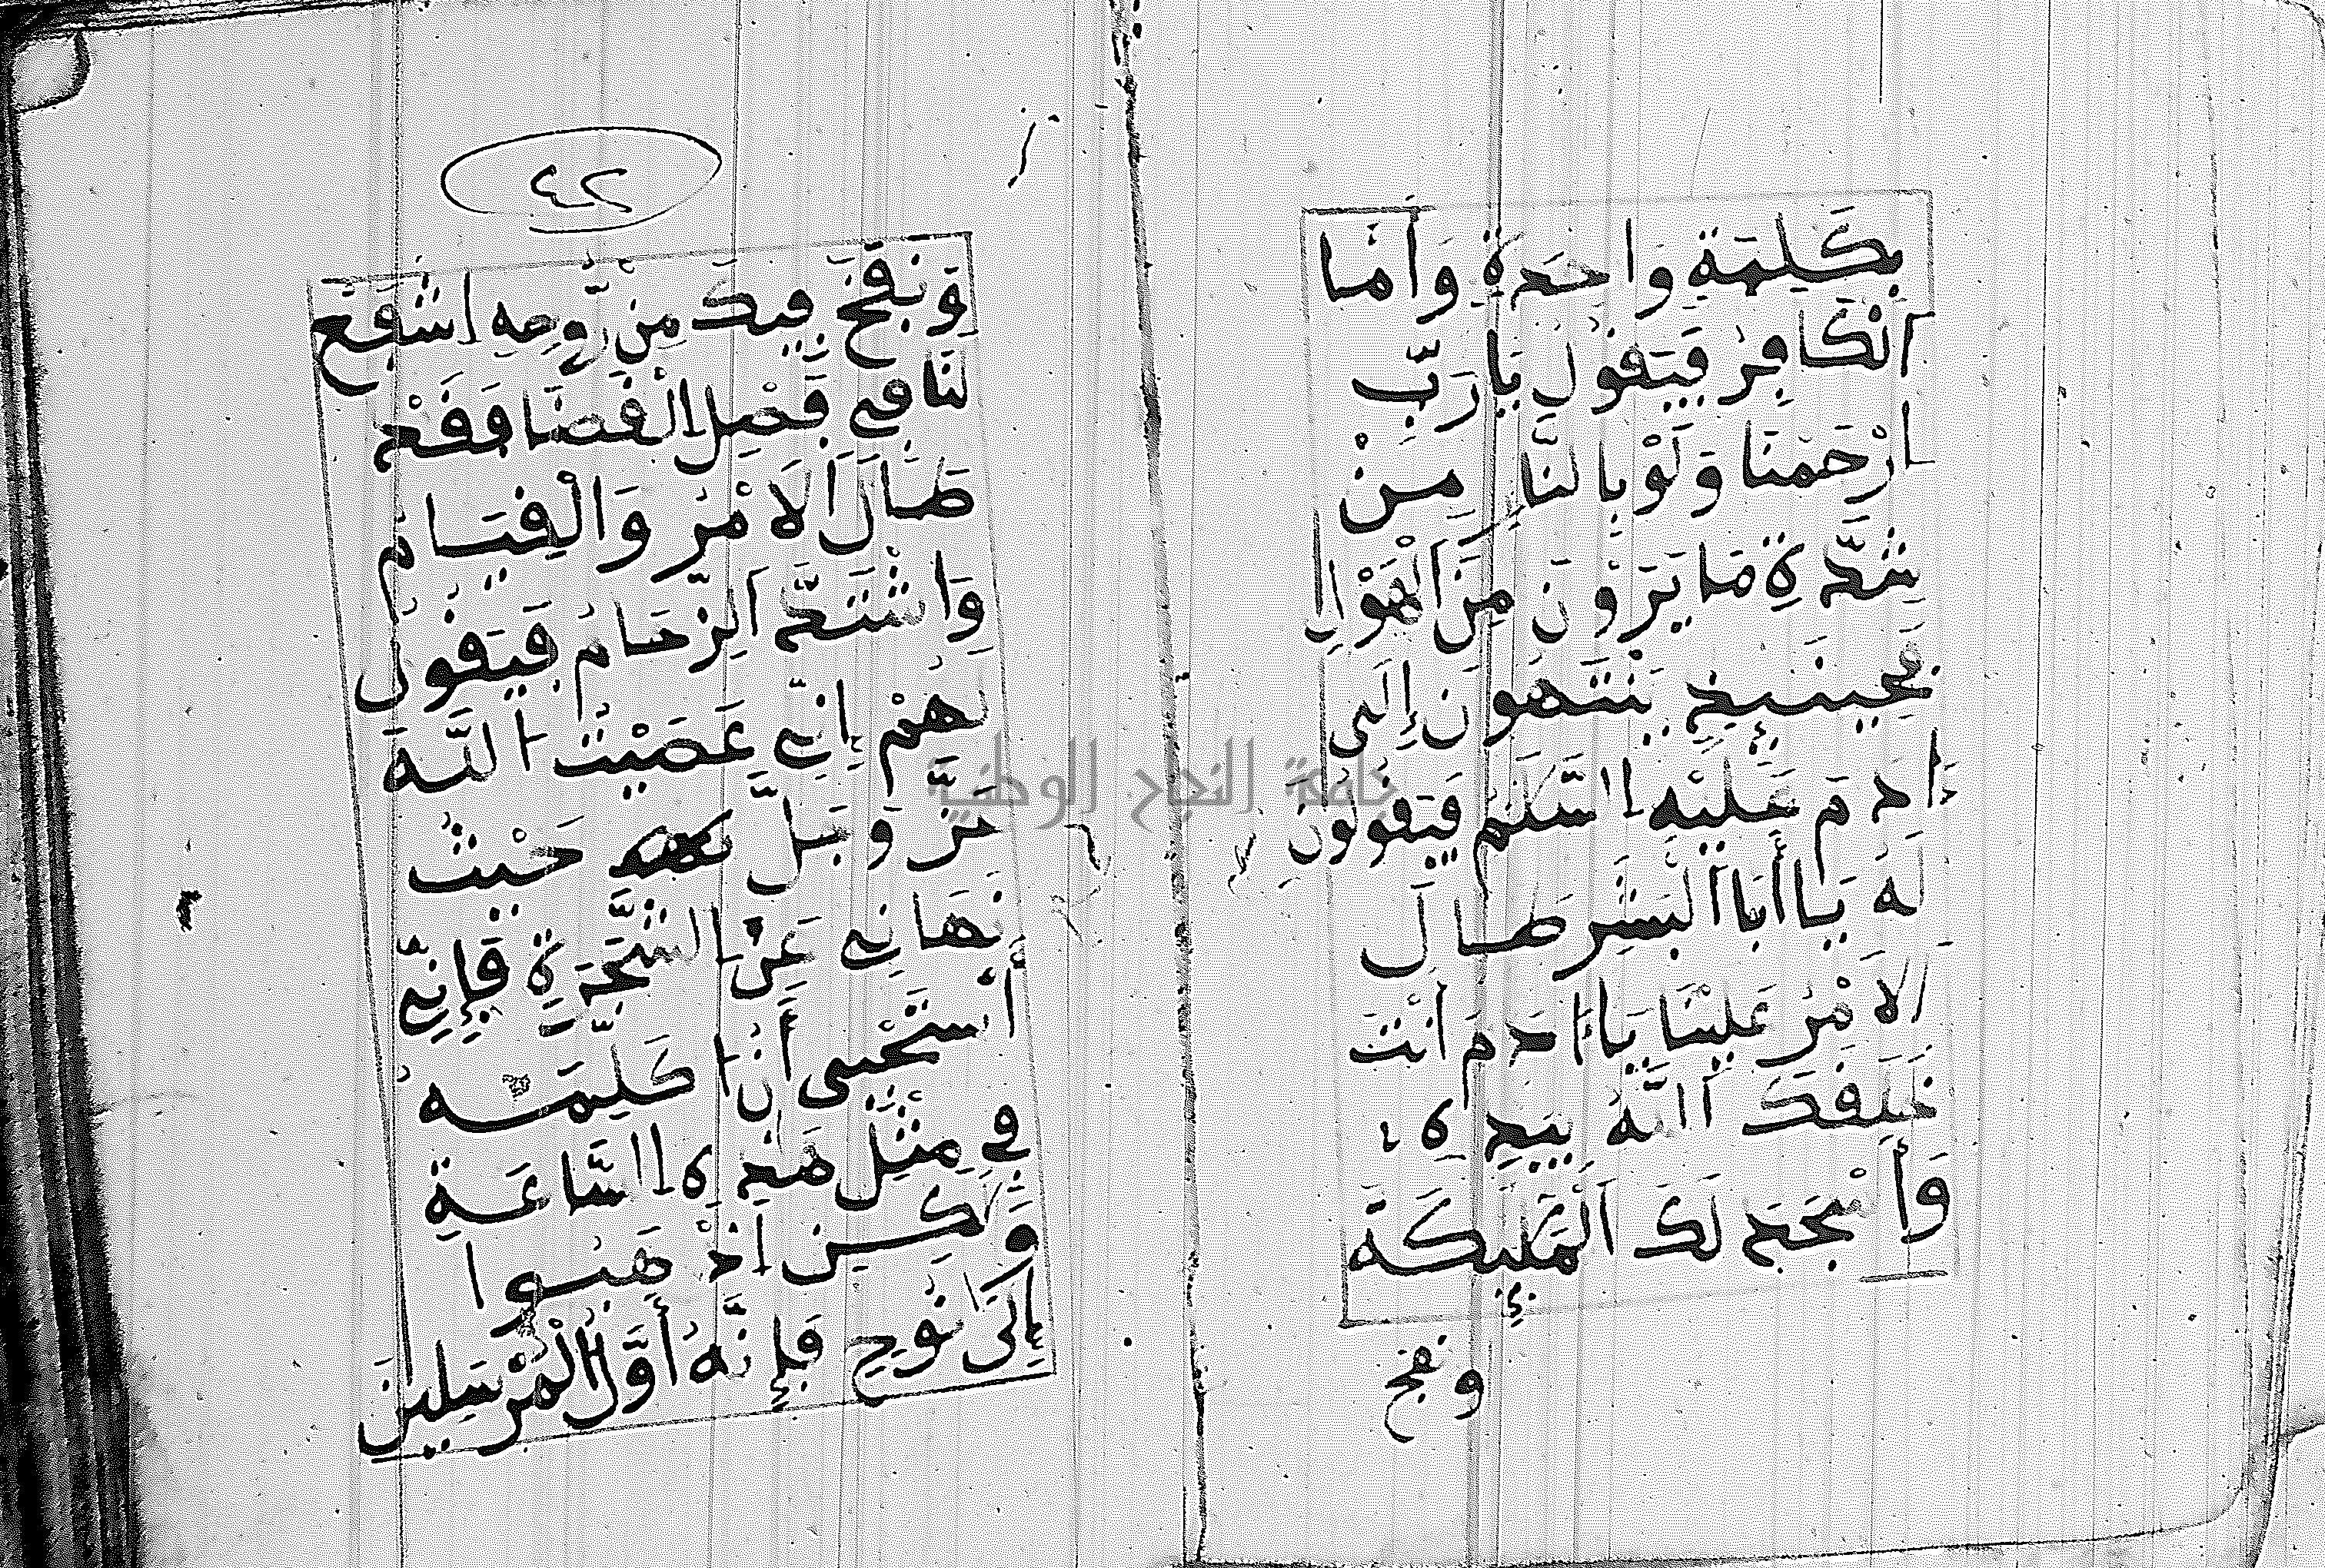 بِكَلِمَةٍ وَاحِدَةٍ وَأَمَّا
الْكَافِرُ فَيَقُولُ يَا رَبِّ
ارْحَمْنَا وَلَوْ بِالنَّارِ مِنْ
شِدَّةِ مَا يَرَوْنَ مِنَ الْهَوْلِ
فَحِينَئِذٍ يَنْتَهُونَ إِلَى
ءَادَمَ عَلَيْهِ السَّلَمُ فَيَقُولُونَ
لَهُ يَا أَبَا الْبَشَرِ طَالَ
الْأَمْرُ عَلَيْنَا يَا ءَادَمَ أَنْتَ
خَلَقَكَ اللَّهُ بِيَدِهِ
وَأَسْجَدَ لَكَ الْمَلَئِكَةَ
ونفخ
٤٢
وَنَفَخَ فِيكَ مِنْ رُّوحِهِ اشْفَعْ
لَنَا فِي فَصْلِ الْقَضَا فَقَدْ
طَالَ الْأَمْرُ وَالْقِيَامُ
وَاشْتَدَّ الزِّحَامُ فَيَقُولُ
لَهُمْ إِنِّي عَصَيْتُ اللَّهَ
عَزَّ وَجَلَّ حَيْثُ
نَهَانِي عَنِ الشَّجَرَةِ فَإِنِّي
أَسْتَحْيِي أَنْ أُكَلِّمَهُ
فِي مِثْلِ هَذِهِ السَّاعَةِ
وَلَكِنْ اذْهَبُوا
إِلَى نُوحٍ فَإِنَّهُ أَوَّلُ الْمُرْسَلِينَ
جامعة النجاح الوطنية